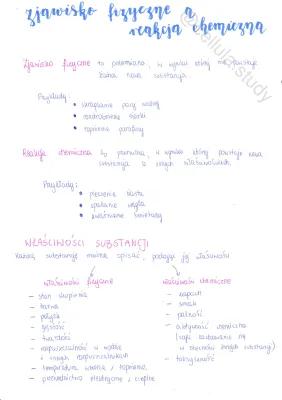 zjawisko fizyczne a
reakcja chemiczna
Zjawisko fizyczne to przemiana, w wyniku której nie powstaje
żadna nowa substancja.
Przykłady:
• skraplanie pary wodnej
• rozdrobnienie siarki
• topnienie parafiny
Reakcja chemiczna to przemiana, w wyniku której powstaje nowa
substancja o innych właściwościach.
Przykłady:
• pieczenie ciasta
• spalanie węgla
• kwaśnienie śmietany
WŁAŚCIWOŚCI SUBSTANCJI
Każdą substancję można opisać, podając jej właściwości
właściwości fizyczne
- stan skupienia
- barwa
- połysk
- gęstość
- twardość
- rozpuszczalność w wodzie
i innych rozpuszczalnikach
- temperatura wrzenia i topnienia
- przewodnictwo elektryczne i cieplne
właściwości chemiczne
- zapach
- smak
- palność
- aktywność chemiczna
(czyli zachowanie się
w obecności innych substancji)
- toksyczność